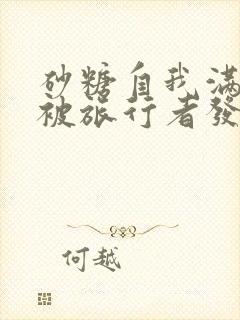 砂糖自我滿
被旅行者發
何越